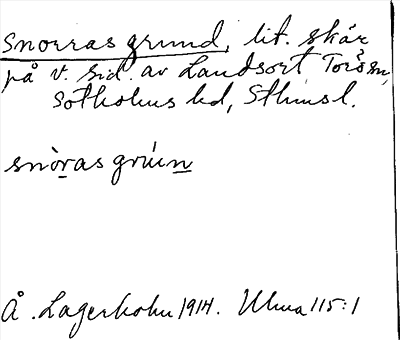 Snorras grund, lit. skär
på v. sid. av Landsort Torö sn,
Sotholms hd, Sthmsl.
snòras grúnn
Å. Lagerholm 1914. Ulma 115:1